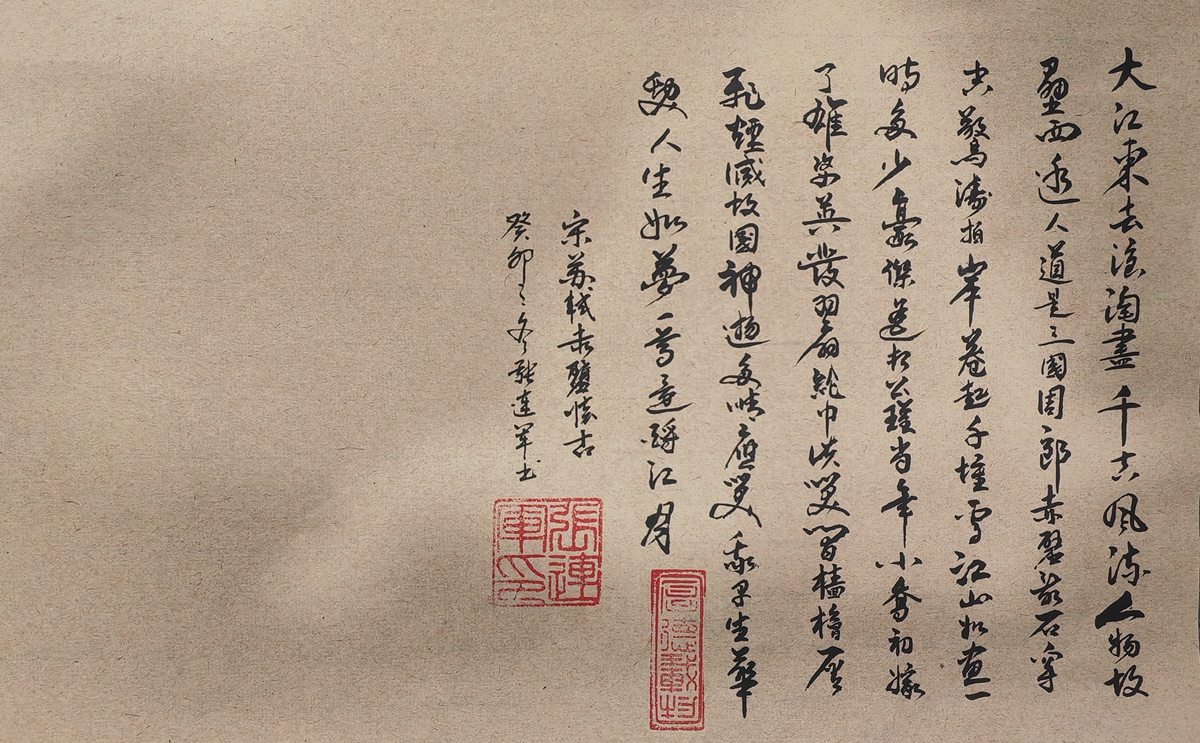 大江東去浪淘盡千古風流人物故
壘西邊人道是三國周郎赤壁亂石穿
空驚濤拍岸卷起千堆雪江山如畫一
時多少豪傑遙想公瑾當年小喬初嫁
了雄姿英發羽扇綸巾談笑間檣櫓灰
飛煙滅故國神遊多情應笑我早生華
髮人生如夢一尊還酹江月
厚德載物
宋蘇軾赤壁懷古
癸卯之冬張連軍书
張連軍印